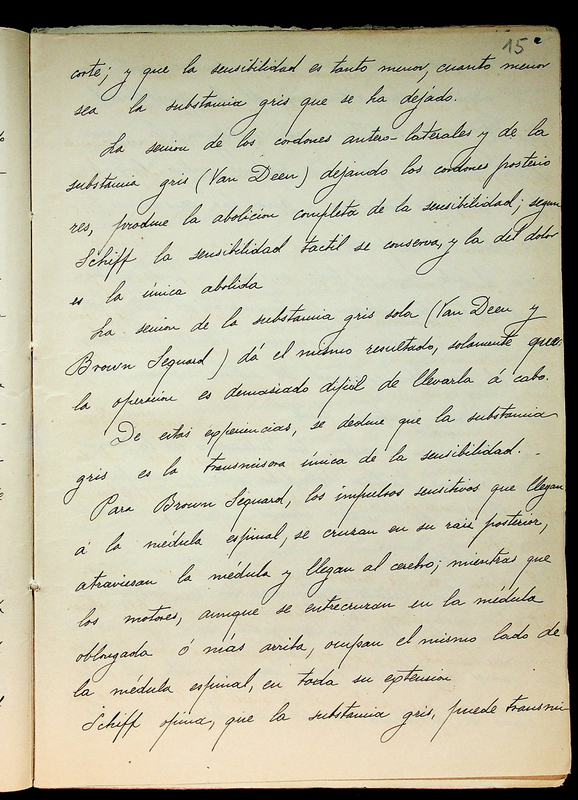 15
corte; y que la sensibilidad es tanto menor, cuanto menor
sea la substancia gris que se ha dejado.
La sección de los cordones antero-laterales y de la
substancia gris (Van Deen) dejando los cordones posterio
res, produce la abolicion completa de la sensibilidad; segun
Schiff la sensibilidad tactil se conserva, y la del dolor
es la única abolida
La sección de la substancia gris sola (Van Deen y
Brown Sequard) dá el mismo resultado, solamente que
la operación es demasiado dificil de llevarla á cabo.
De estas experiencias, se deduce que la substancia
gris es la transmisora única de la sensibilidad. -
Para Brown Sequard, los impulsos sensitivos que llegan
á la médula espinal, se cruzan en su raiz posterior,
atraviesan la médula y llegan al cerebro; mientras que
los motores, aunque se entrecruzan en la médula
oblongada ó más arriba, ocupan el mismo lado de
la médula espinal, en toda su extension
Schiff opina, que la substancia gris, puede transmi